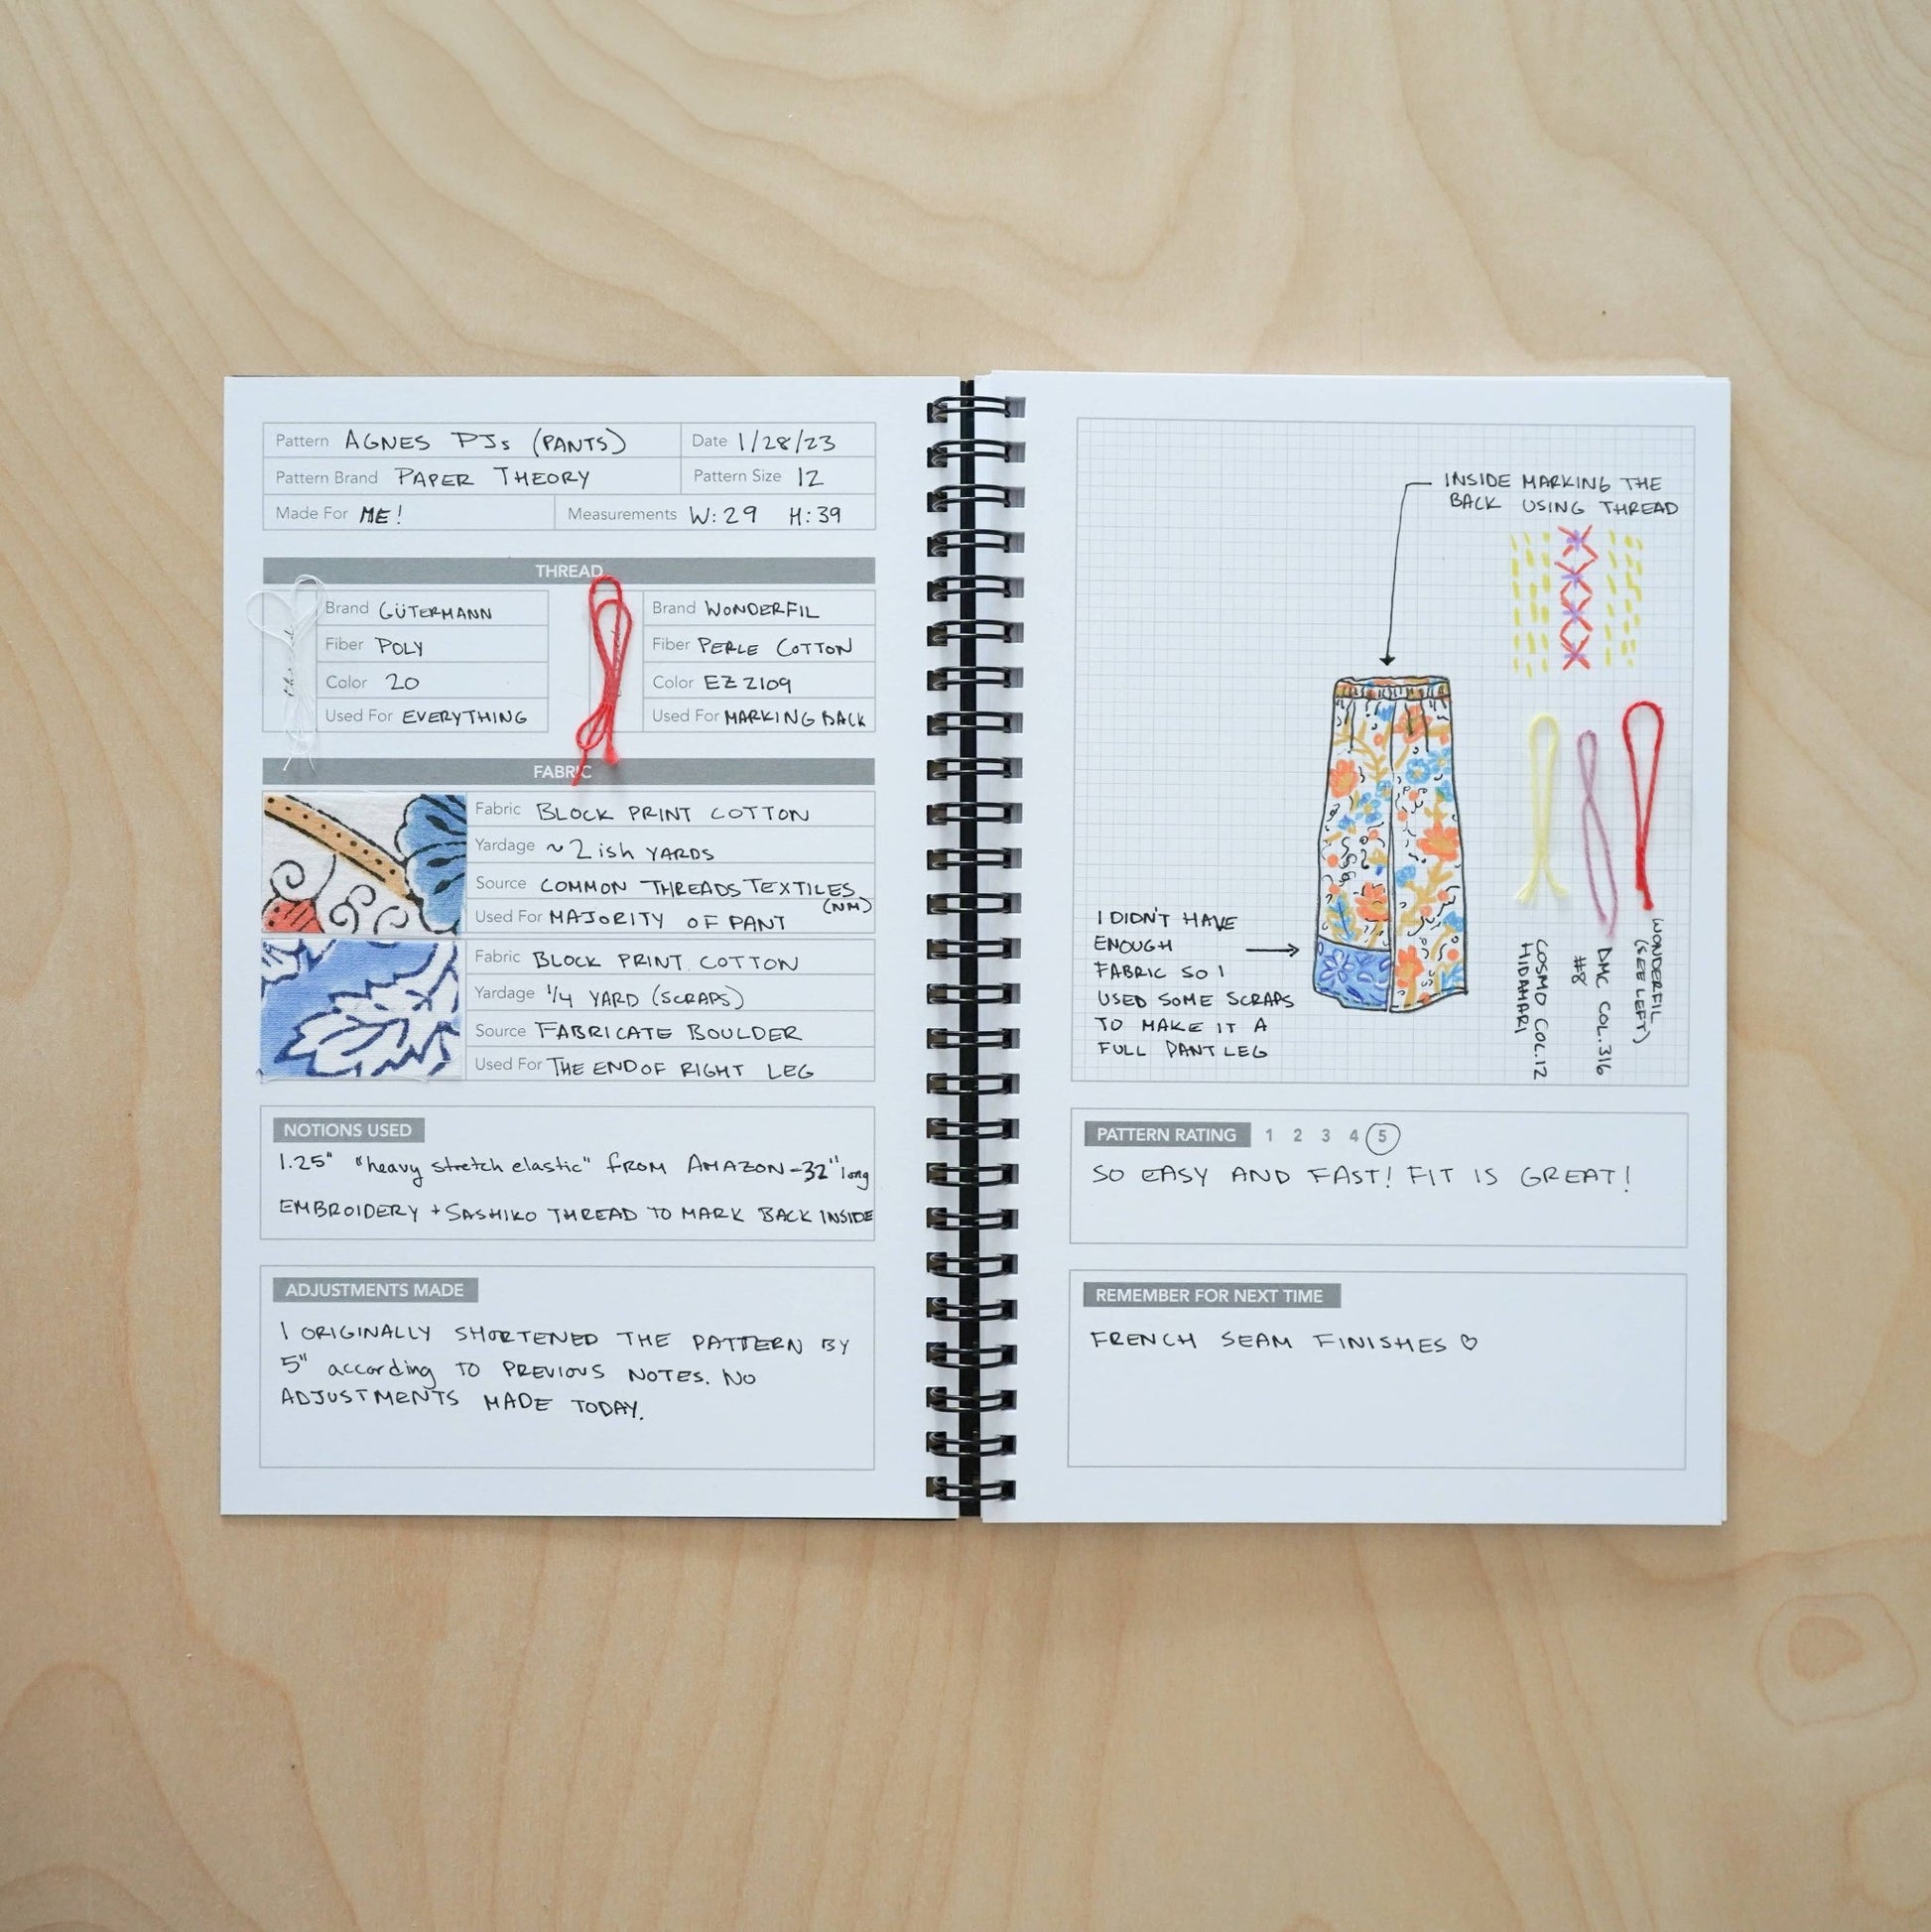 Pattern AGNES PJs (PANTS) Date 1/28/23
Pattern Brand PAPER THEORY Pattern Size 12
Made For ME! Measurements W: 29 H: 39
THREAD
Brand GÜTERMANN
Fiber POLY
Color 20
Used For EVERYTHING
Brand WONDERFIL
Fiber PERLE COTTON
Color EZ 2109
Used For MARKING BACK
FABRIC
Fabric BLOCK PRINT COTTON
Yardage ~ 2 ish YARDS
Source COMMON THREADS TEXTILES (NM)
Used For MAJORITY OF PANT
Fabric BLOCK PRINT COTTON
Yardage 1/4 YARD (SCRAPS)
Source FABRICATE BOULDER
Used For THE END OF RIGHT LEG
NOTIONS USED
1.25" "heavy stretch elastic" FROM AMAZON - 32" long
EMBROIDERY + SASHIKO THREAD TO MARK BACK INSIDE
ADJUSTMENTS MADE
I ORIGINALLY SHORTENED THE PATTERN BY
5" according TO PREVIOUS NOTES. NO
ADJUSTMENTS MADE TODAY.
INSIDE MARKING THE
BACK USING THREAD
I DIDN'T HAVE
ENOUGH
FABRIC SO I
USED SOME SCRAPS
TO MAKE IT A
FULL PANT LEG
COSMO COL.12
HIDAMARI
DMC COL.316
#8
WONDERFIL
(SEE LEFT)
PATTERN RATING 1 2 3 4 5
SO EASY AND FAST! FIT IS GREAT!
REMEMBER FOR NEXT TIME
FRENCH SEAM FINISHES ♡